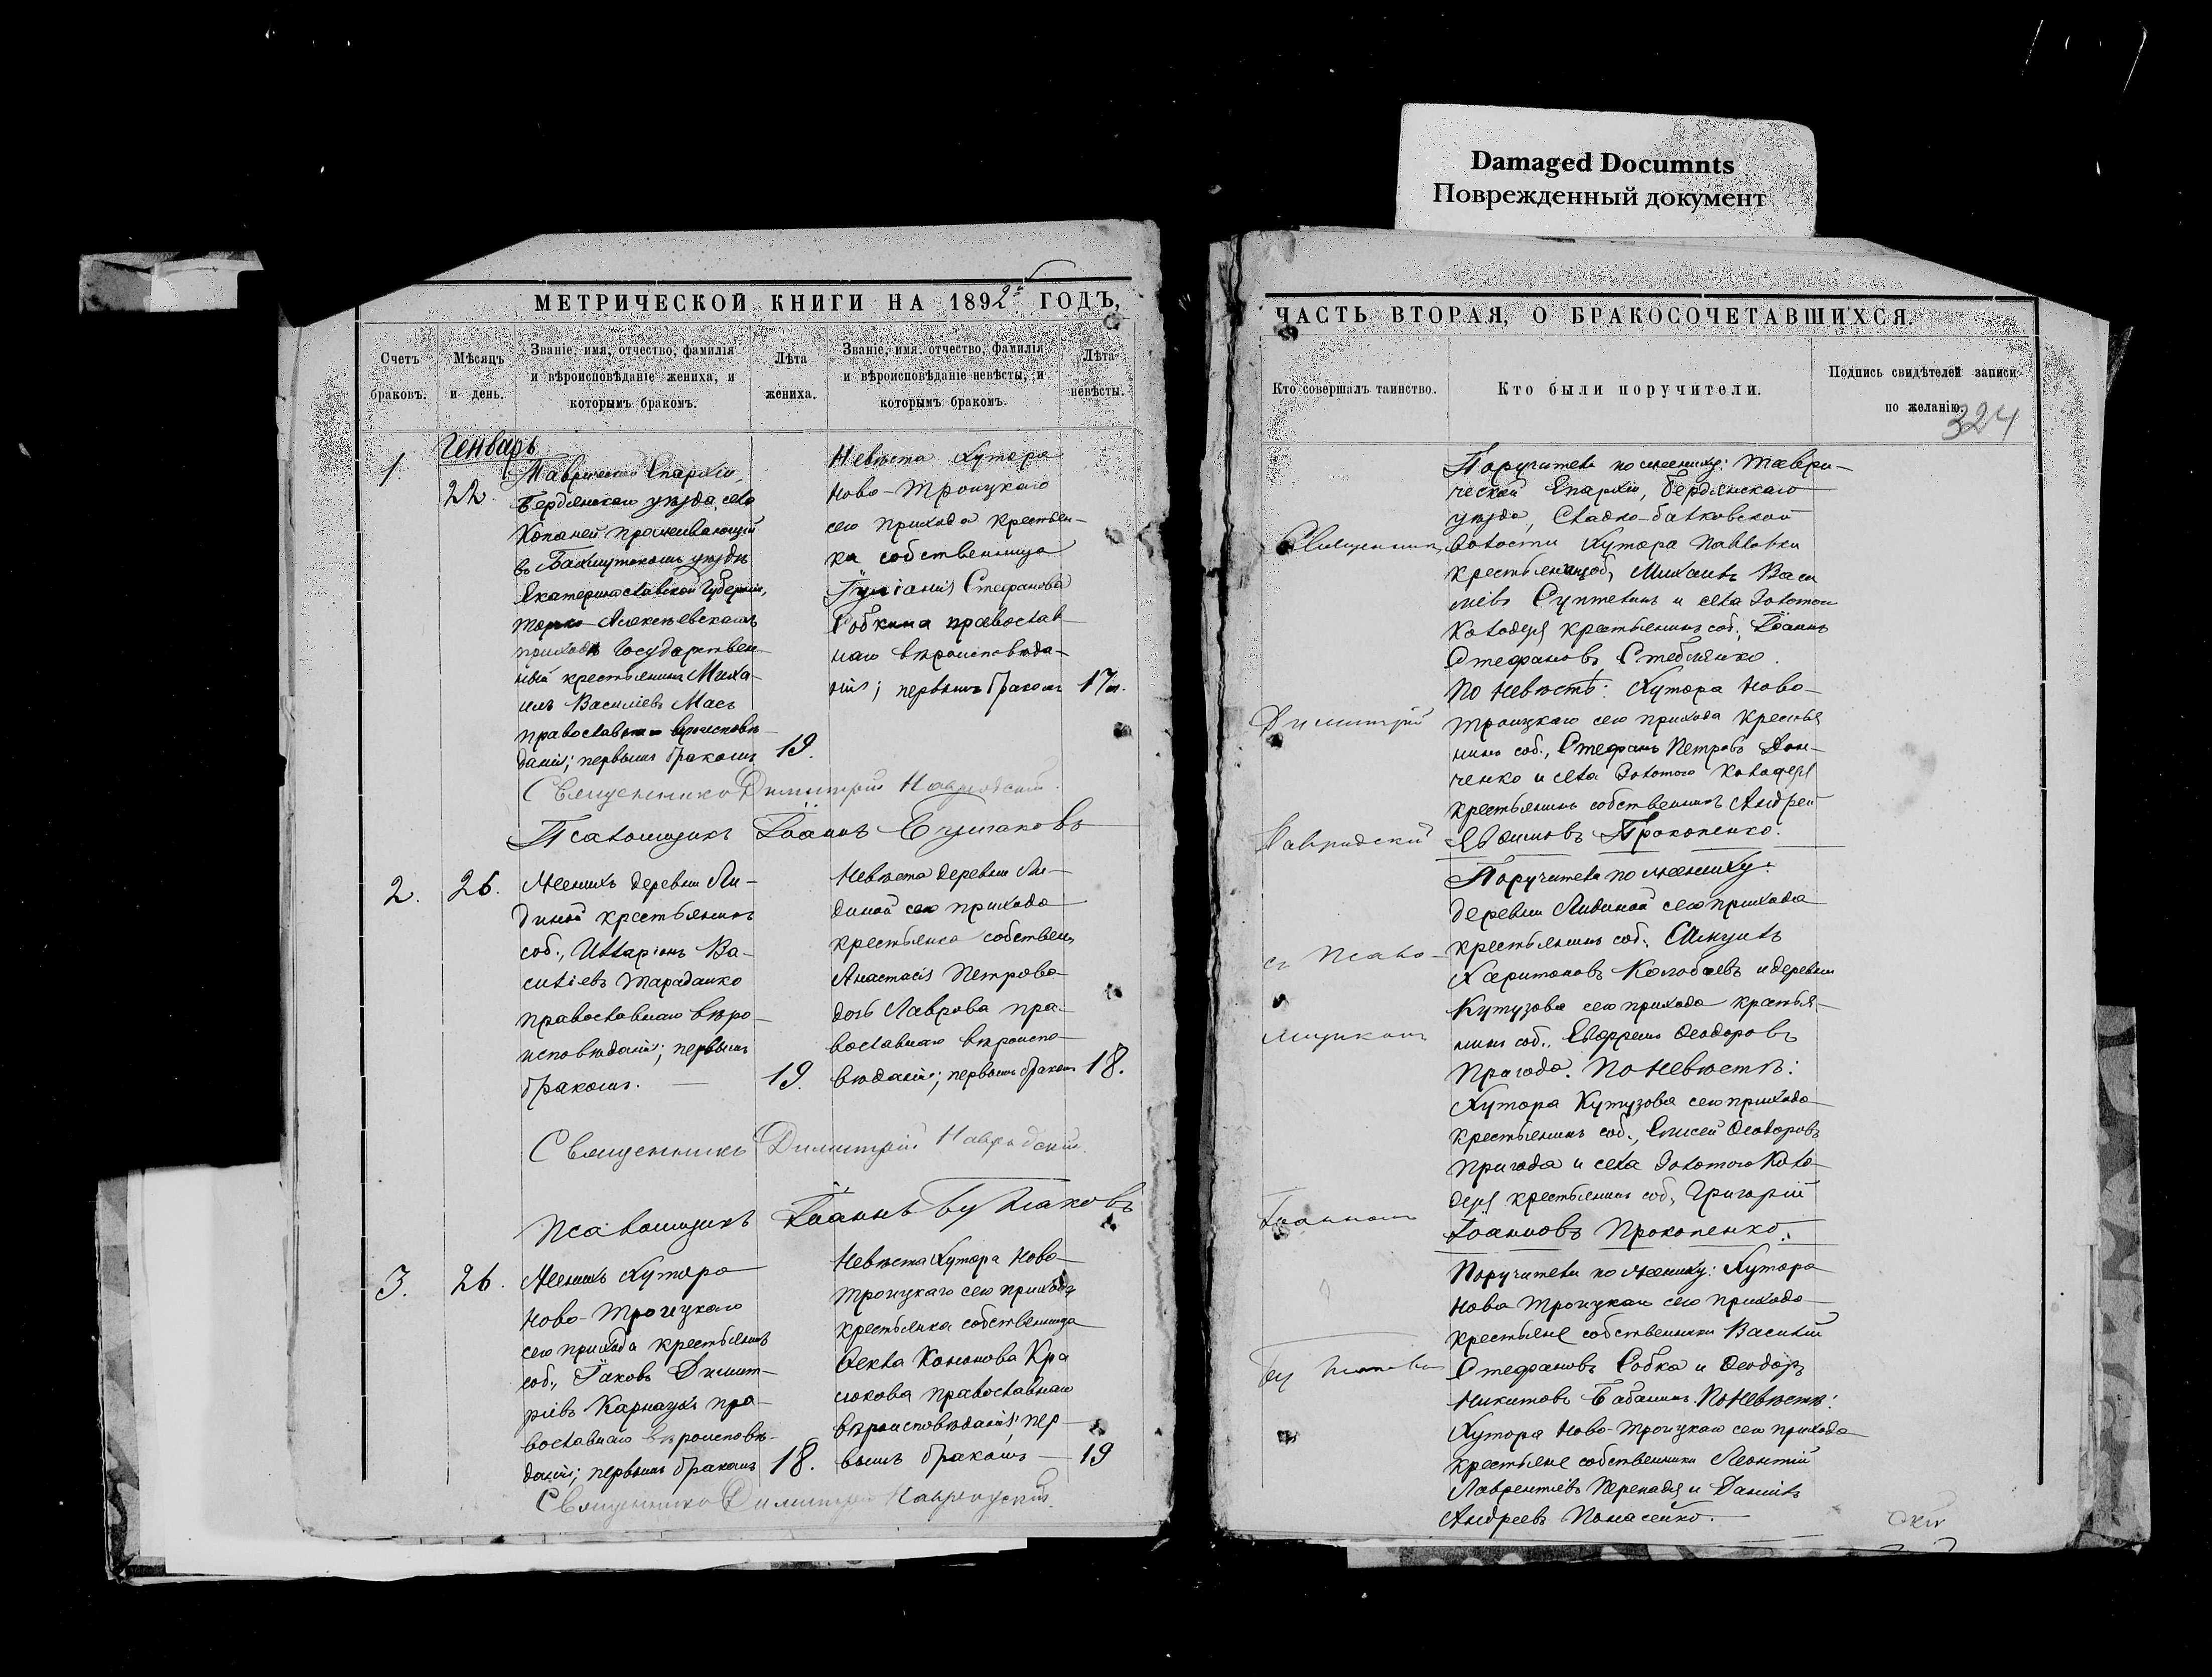 Damaged Documnts
Поврежденный документ
МЕТРИЧЕСКОЙ КНИГИ НА 1892й ГОДЪ,
Счетъ браковъ.
Мѣсяцъ и день.
Званіе, имя, отчество, фамилія
и вѣроисповѣданіе жениха, и
которымъ бракомъ.
Лѣта жениха.
Званіе, имя, отчество, фамилія
и вѣроисповѣданіе невѣсты, и
которымъ бракомъ.
Лѣта невѣсты.
Генварь
1.
22.
Таврической Епархіи,
Бердянскаго уѣзда, села
Копаней проживающій
въ Бахмутскомъ уѣздѣ
Екатеринославской Губерніи,
Алексѣевскаго
приходѣ Государствен-
ный крестьянинъ Миха-
илъ Василіевъ Масъ
православнаго вѣроисповѣ-
данія; первымъ бракомъ
19.
Невѣста хутора
Ново-Троицкаго
сего прихода крестьян-
ка собственница
Іуліанія Стефанова
Собкина православ-
наго вѣроисповѣда-
нія; первымъ бракомъ
17
Священникъ Димитрій Навродскій.
Псаломщикъ Іоаннъ Булгаковъ
2.
26.
Женихъ деревни Ли-
диной крестьянинъ
соб., Илларіонъ Ва-
силіевъ Тараданко
православнаго вѣро-
исповѣданія; первымъ
бракомъ.
19.
Невѣста деревни Ли-
диной сего прихода
крестьянка собствен.
Анастасія Петрова
дочь Лаврова пра-
вославнаго вѣроиспо-
вѣданія; первымъ бракомъ
18.
Священникъ Димитрій Навродскій.
Псаломщикъ Іоаннъ Булгаковъ
3.
26.
Женихъ хутора
Ново-Троицкаго
сего прихода крестьянинъ
соб., Іаковъ Димит-
ріевъ Карнаухъ пра-
вославнаго вѣроисповѣ-
данія; первымъ бракомъ
18.
Невѣста хутора Ново-
Троицкаго сего прихода
крестьянка собственница
Ѳекла Кононова Кра
сюкова православнаго
вѣроисповѣданія; пер-
вымъ бракомъ
19
Священникъ Димитрій Навродскій.
ЧАСТЬ ВТОРАЯ, О БРАКОСОЧЕТАВШИХСЯ.
Кто совершалъ таинство.
Кто были поручители.
Подпись свидѣтелей записи
по желанію.
324
Священникъ
Димитрій
Навродскій
съ Псало-
мщикомъ
Іоанномъ
Булгаковымъ
Поручители по жениху: Таври-
ческой Епархіи, Бердянскаго
уѣзда, Сладко-балковской
волости хутора Павловки
крестьянинъ соб., Михаилъ Васи
ліевъ и села Золотого
Колодезя крестьянинъ соб., Іоаннъ
Стефановъ Стеблянко.
По невѣстѣ: Хутора Ново-
троицкаго сего прихода крестья
нинъ соб., Стефанъ Петровъ
ченко и села Золотого Колодезя
крестьянинъ собственникъ Андрей
Евѳимовъ Прокопенко.
Поручители по жениху:
деревни Лидиной сего прихода
крестьянинъ соб.,
Харитоновъ Колобаевъ и деревни
Кутузова сего прихода крестья-
нинъ соб., Евфремъ Ѳеодоровъ
Пригода. По невѣстѣ:
Хутора Кутузова сего прихода
крестьянинъ соб., Елисей Ѳеодоровъ
Пригода и села Золотого Коло-
дезя крестьянинъ соб., Григорій
Іоанновъ Прокопенко.
Поручители по жениху: Хутора
Ново Троицкаго сего прихода
крестьяне собственники Василій
Стефановъ Собка и Ѳеодоръ
Никитовъ Бабанинъ. По невѣстѣ:
Хутора Ново-Троицкаго сего прихода
крестьяне собственники Леонтій
Лаврентіевъ Перепадя и Даніилъ
Андреевъ Понасенко.